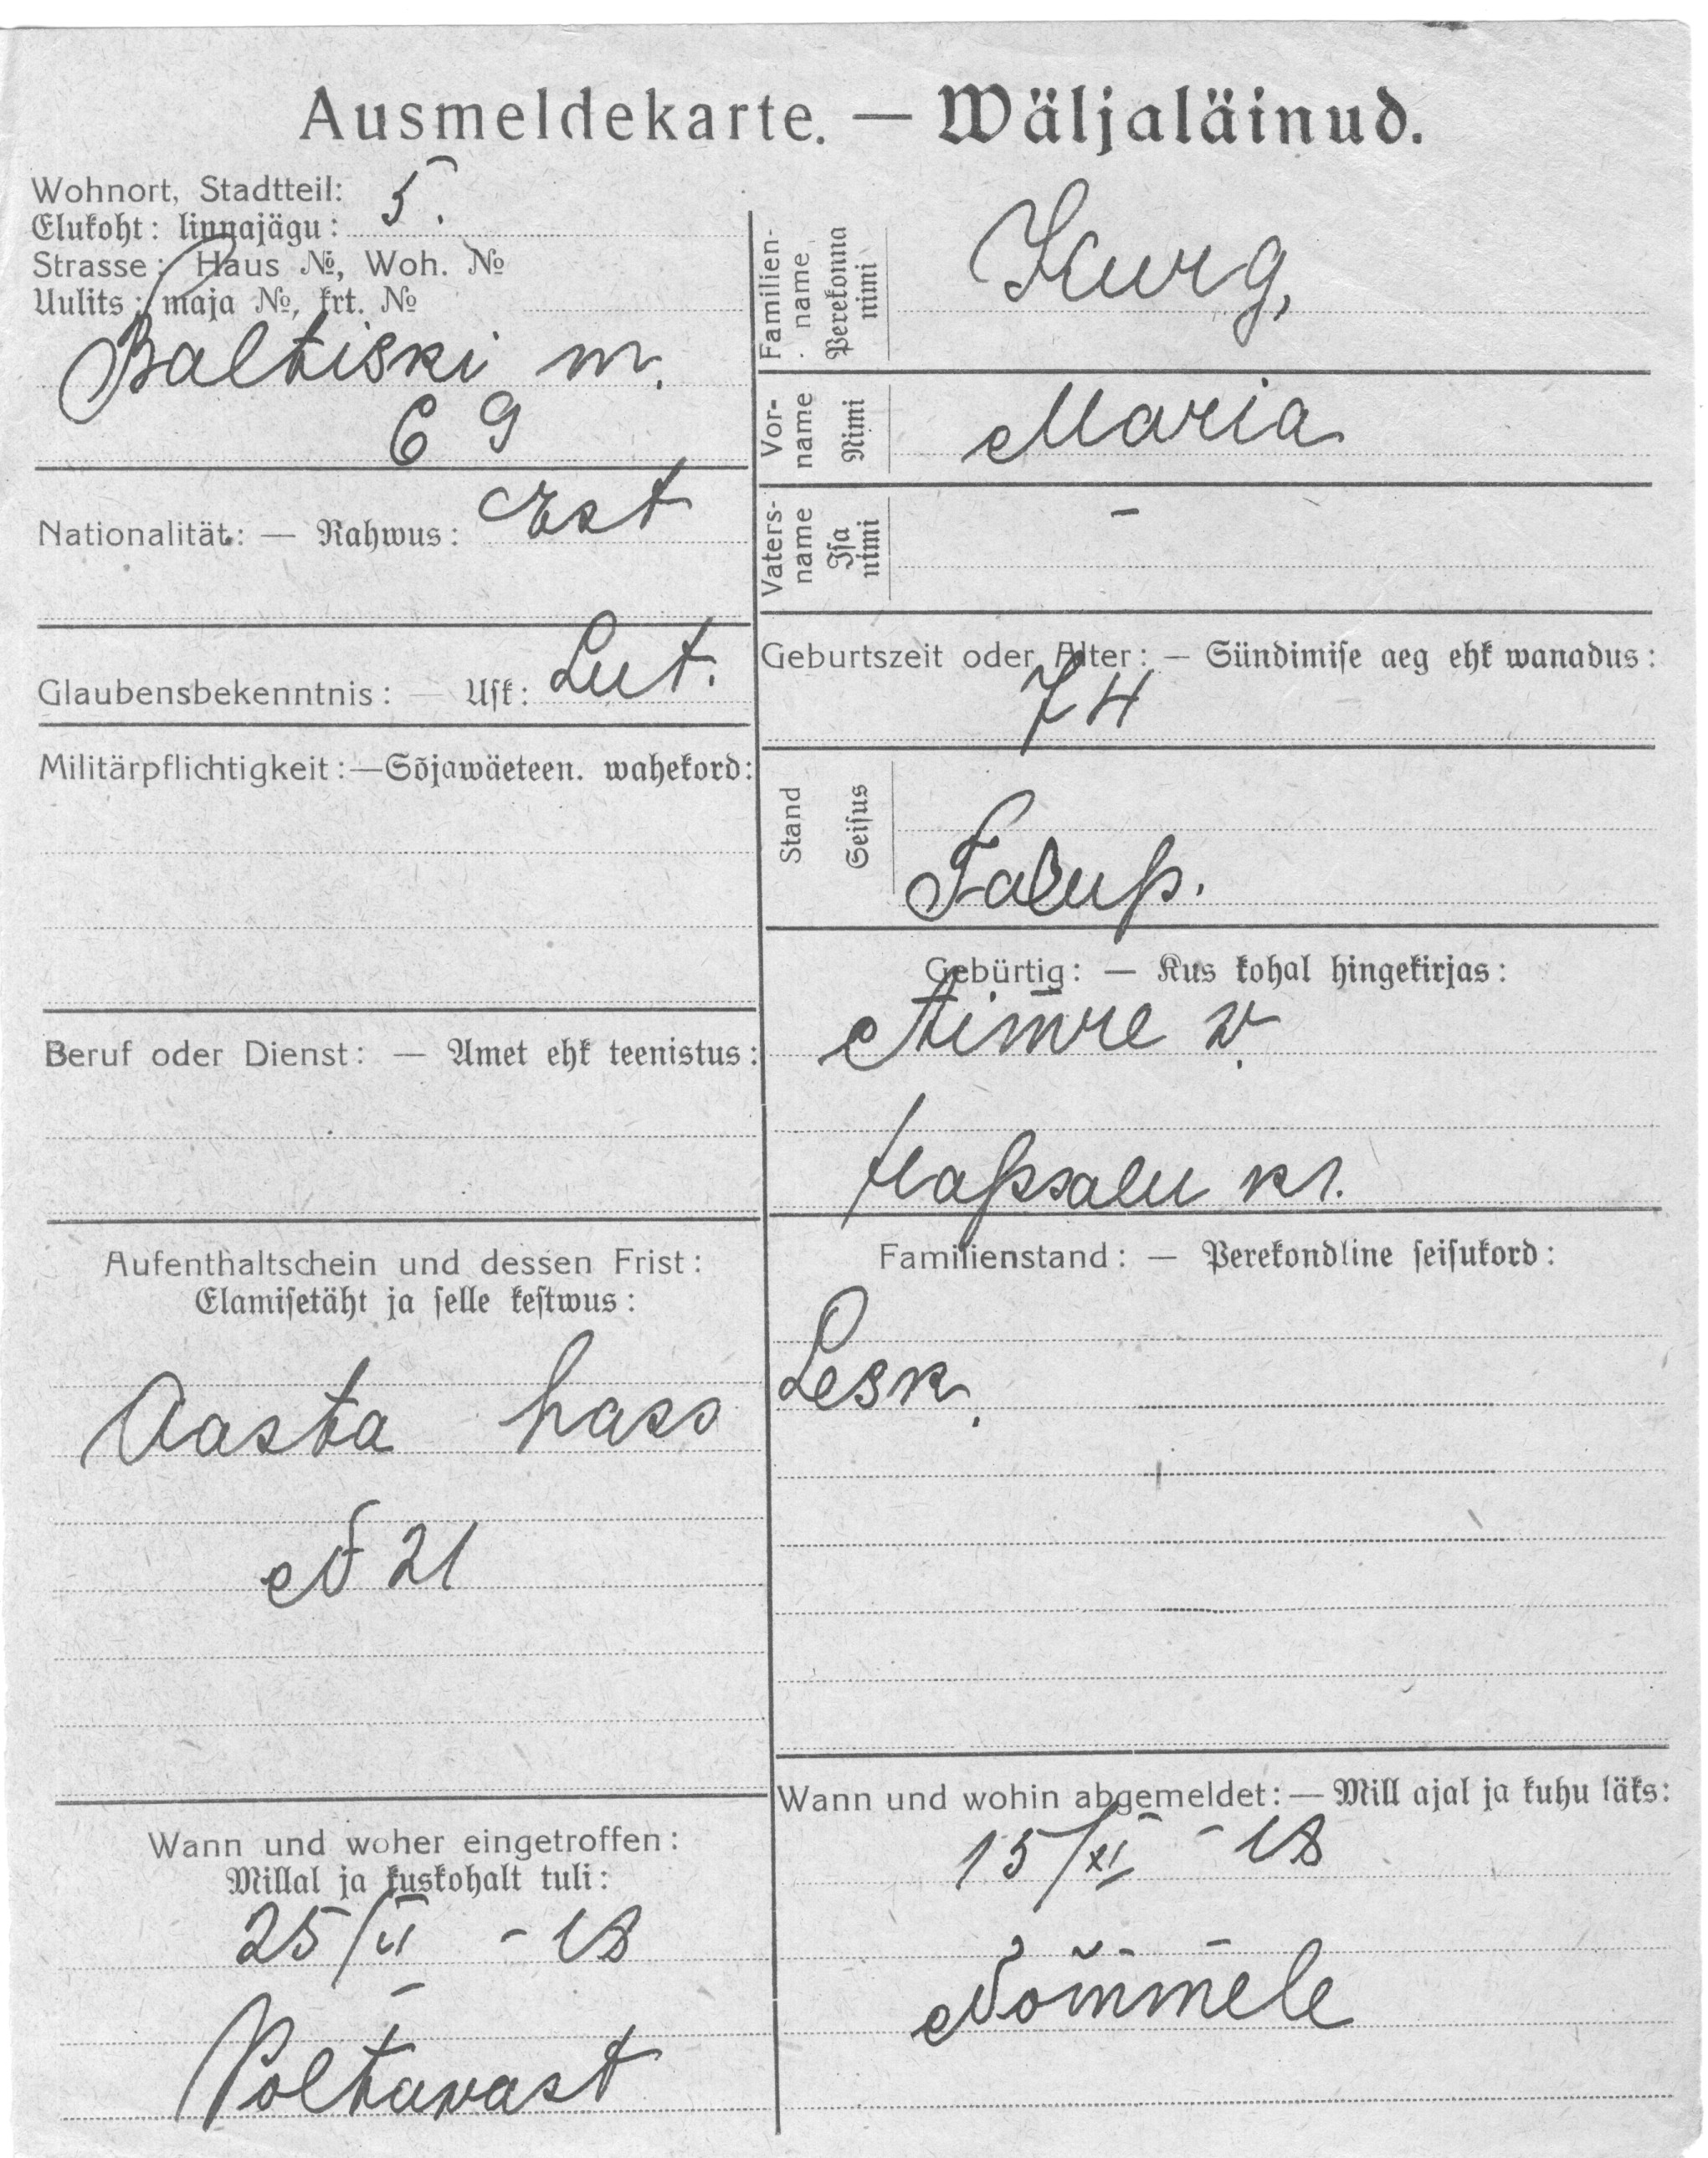 Ausmeldekarte. — Wäljaläinud.
Wohnort, Stadtteil:
Elukoht: linnajägu: 5.
Strasse: Haus №, Woh. №
Uulits: maja №, krt. №
Baltiski m.
69
Nationalität: — Rahwus: Est
Glaubensbekenntnis: — Usk: Lut.
Militärpflichtigkeit:—Sõjawäeteen. wahekord:
Beruf oder Dienst: — Amet ehk teenistus:
Aufenthaltschein und dessen Frist:
Elamisetäht ja selle kestwus:
Aasta pass
N 21
Wann und woher eingetroffen:
Millal ja kuskohalt tuli:
25/VI - 18
Poltavast
Familien-name
Perekonna nimi
Kurg,
Vor-name
Nimi
Maria
Vaters-name
Isa nimi
—
Geburtszeit oder Alter: — Sündimise aeg ehk wanadus:
74
Stand
Seisus
Talup.
Gebürtig: — Kus kohal hingekirjas:
v.
Hapsalu kr.
Familienstand: — Perekondline seisukord:
Lesk.
Wann und wohin abgemeldet: — Mill ajal ja kuhu läks:
15/XI - 18
Nõmmele